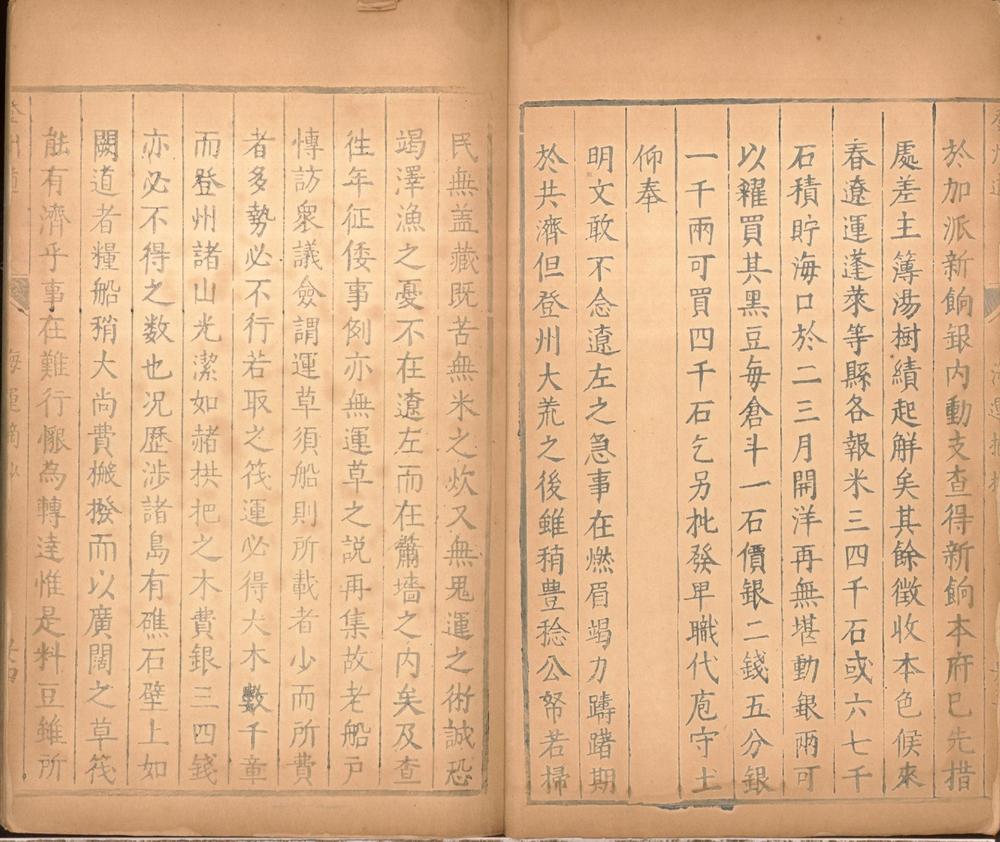 於加派新餉銀內動支查得新餉本府已先措
處差主簿湯樹績起觧矣其餘徵收本色候來
春遼運蓬萊等縣各報米三四千石或六七千
石積貯海口於二三月開洋再無堪動銀兩可
以糴買其黒豆每倉斗一石價銀二錢五分銀
一千兩可買四千石乞另批發卑職代庖守土
仰奉
明文敢不念遼左之急事在燃眉竭力躊躇期
於共濟但登州大荒之後雖稍豊稔公帑若掃
民無盖藏既苦無米之炊又無鬼運之術誠恐
竭澤漁之憂不在遼左而在蕭墻之内矣及查
徃年征倭事例亦無運草之説再集故老船戸
慱訪衆議僉謂運草須船則所載者少而所費
者多勢必不行若取之筏運必得大木數千章
而登州諸山光潔如赭拱把之木費銀三四錢
亦必不得之数也况歴涉諸島有礁石壁上如
闕道者糧船稍大尚費搬撥而以廣闊之草筏
能有濟乎事在難行懨為轉逹惟是料豆雖所
海運摘抄